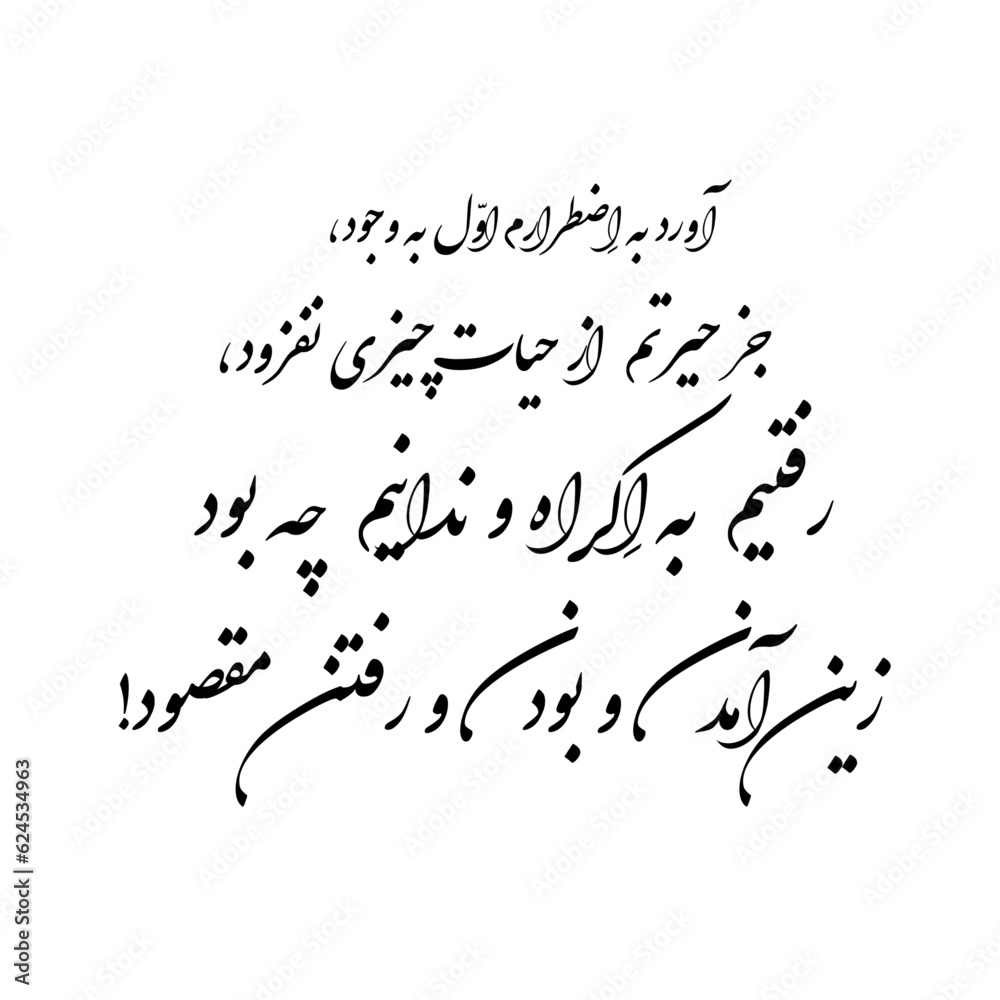 آورد به اِضطرارم اوّل به وجود،
جز حیرتم از حیات چیزی نفزود،
رفتیم به اِکراه و ندانیم چه بود
زین آمدن و بودن و رفتن مقصود!
Adobe Stock | #624534963